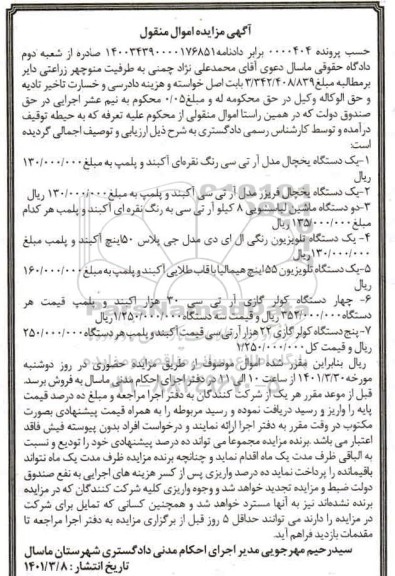 آگهی مزایده اموال منقول
حسب پرونده ۰۰۰۰۴۰۴ برابر دادنامه ۱۴۰۰۳۴۳۹۰۰۰۰۱۷۶۸۵۱ صادره از شعبه دوم
دادگاه حقوقی ماسال دعوی آقای محمدعلی نژاد چمنی به طرفیت منوچهر زراعتی دایر
برمطالبه مبلغ ۳/۳۴۲/۴۰۸/۸۳۹ بابت اصل خواسته و هزینه دادرسی و خسارت تاخیر تادیه
و حق الوکاله وکیل در حق محکومه له و مبلغ ۰/۰۵ محکوم به نیم عشر اجرایی در حق
صندوق دولت که در همین راستا اموال منقولی از محکوم علیه تعرفه که به حیطه توقیف
درآمده و توسط کارشناس رسمی دادگستری به شرح ذیل ارزیابی و توصیف اجمالی گردیده
است:
۱-یک دستگاه یخچال مدل آر تی سی رنگ نقره‌ای آکبند و پلمپ به مبلغ ۱۳۰/۰۰۰/۰۰۰
ریال
۲-یک دستگاه یخچال فریزر مدل آر تی سی آکبند و پلمپ به مبلغ ۱۳۰/۰۰۰/۰۰۰ ریال
۳-دو دستگاه ماشین لباسشویی ۸ کیلو آر تی سی به رنگ نقره ای آکبند و پلمپ هر کدام
مبلغ ۱۳۵/۰۰۰/۰۰۰ ریال
۴- یک دستگاه تلویزیون رنگی ال ای دی مدل جی پلاس ۵۰اینچ آکبند و پلمپ مبلغ
۱۳۰/۰۰۰/۰۰۰ ریال
۵-یک دستگاه تلویزیون ۵۵اینچ هیمالیا باقاب طلایی آکبند و پلمپ به مبلغ ۱۶۰/۰۰۰/۰۰۰
ریال
۶- چهار دستگاه کولر گازی آر تی سی ۳۰ هزار آکبند و پلمپ قیمت هر
دستگاه ۳۵۲/۰۰۰/۰۰۰ ریال و قیمت سه دستگاه ۱/۲۵۰/۰۰۰/۰۰۰ ریال
۷-پنج دستگاه کولر گازی ۲۲ هزار آر تی سی قیمت آکبند و پلمپ هر دستگاه ۲۵۰/۰۰۰/۰۰۰
ریال و قیمت کل ۱/۲۵۰/۰۰۰/۰۰۰
ریال بنابراین مقرر شده اموال موصوف از طریق مزایده حضوری در روز دوشنبه
مورخه ۱۴۰۱/۳/۳۰ از ساعت ۱۰ الی ۱۱ در دفتر اجرای احکام مدنی ماسال به فروش برسد.
قبل از موعد مقرر هر یک از شرکت کنندگان به دفتر اجرا مراجعه و مبلغ ده درصد قیمت
پایه را واریز و رسید دریافت نموده و رسید مربوطه را به همراه قیمت پیشنهادی بصورت
مکتوب در وقت مقرر به دفتر اجرا ارائه نمایند و درخواست افراد بدون پیوسته فیش فاقد
اعتبار می باشد. برنده مزایده مجموعا می تواند ده درصد پیشنهادی خود را تودیع و نسبت
به الباقی ظرف مدت یک ماه اقدام نماید و چنانچه برنده مزایده ظرف مدت یک ماه نتواند
باقیمانده را پرداخت نماید ده درصد واریزی پس از کسر هزینه های اجرایی به نفع صندوق
دولت ضبط و مزایده تجدید خواهد شد و وجوه واریزی کلیه شرکت کنندگان که در مزایده
برنده نشده‌اند نیز به آنها مسترد خواهد شد و همچنین کسانی که تمایل برای شرکت
در مزایده را دارند می توانند حداقل ۵ روز قبل از برگزاری مزایده به دفتر اجرا مراجعه تا
مقدمات بازدید فراهم آید.
سیدرحیم مهرجویی مدیر اجرای احکام مدنی دادگستری شهرستان ماسال
تاریخ انتشار: ۱۴۰۱/۳/۸